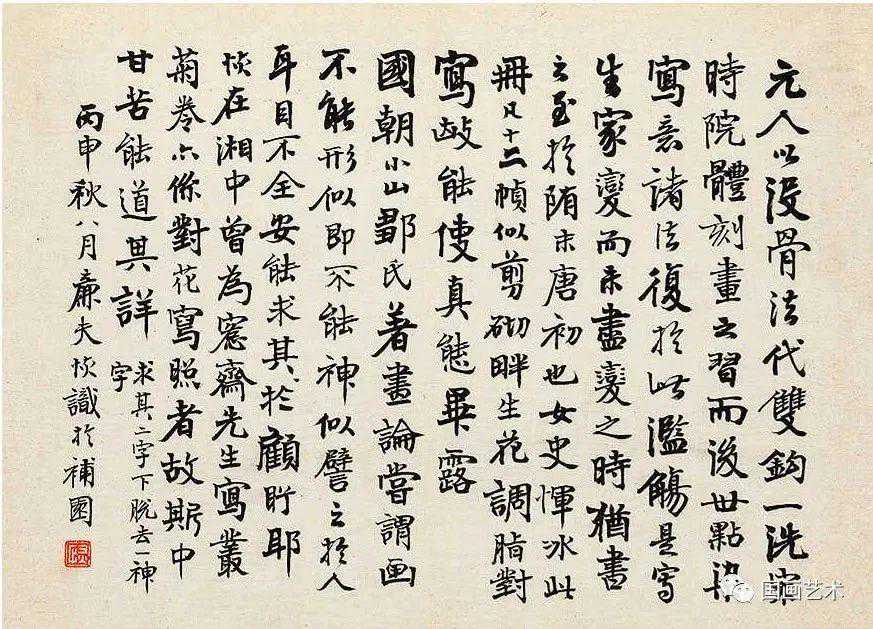 元人以没骨法代雙鈎一洗宋
時院體刻畫之習而後世點染
寫意諸法復於此濫觴是寫
生家變而未盡變之時猶書
之至於隋末唐初也女史惲冰此
冊凡十二幀似剪砌畔生花調脂對
寫故能使真態畢露
國朝小山鄒氏著畫論嘗謂画
不能形似即不能神似譬之於人
耳目不全安能求其於顧盼耶
恢在湘中曾為愙齋先生寫叢
菊卷亦係對花寫照者故斯中
甘苦能道其詳
求其二字下脫去一神
字
丙申秋八月廉夫恢識於補園
国画艺术